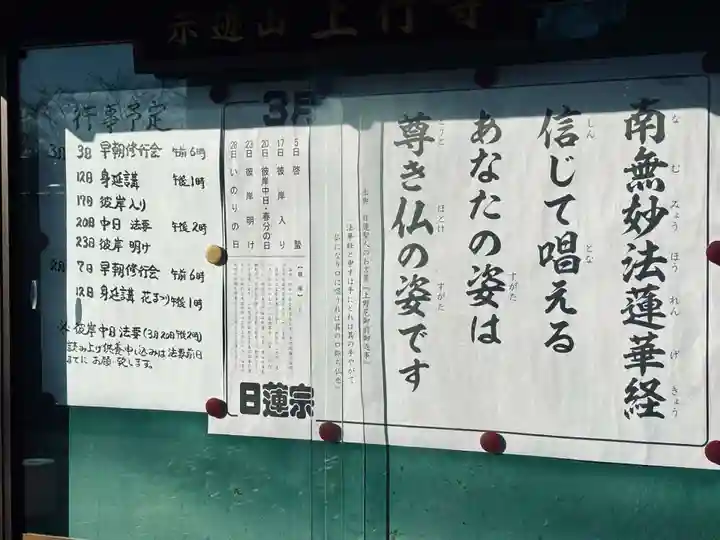 山 上行寺
行事予定
3月 3日 早朝修行会 午前6時
12日 身延講 午後1時
17日 彼岸入り
20日 中日 法要 午後2時
23日 彼岸 明け
7日 早朝修行会 午前6時
12日 身延講 花まつり 午後1時
※ 彼岸中日法要(3月20日午後2時)
読み上げ供養申し込みは法要前日
までに お願い致します。
3月
5日 啓蟄
17日 彼岸入り
20日 彼岸中日・春分の日
23日 彼岸明け
28日 いのりの日
日蓮宗
南無妙法蓮華経
な む みょう ほう れん げ きょう
信じて唱える
しん とな
あなたの姿は
すがた
尊き仏の姿です
とうと ほとけ すがた
出典 日蓮聖人のお言葉『上野尼御前御返事』
法華経と申すは手にとれば其の手やがて
仏になり口に唱うれば其の口即ち仏也